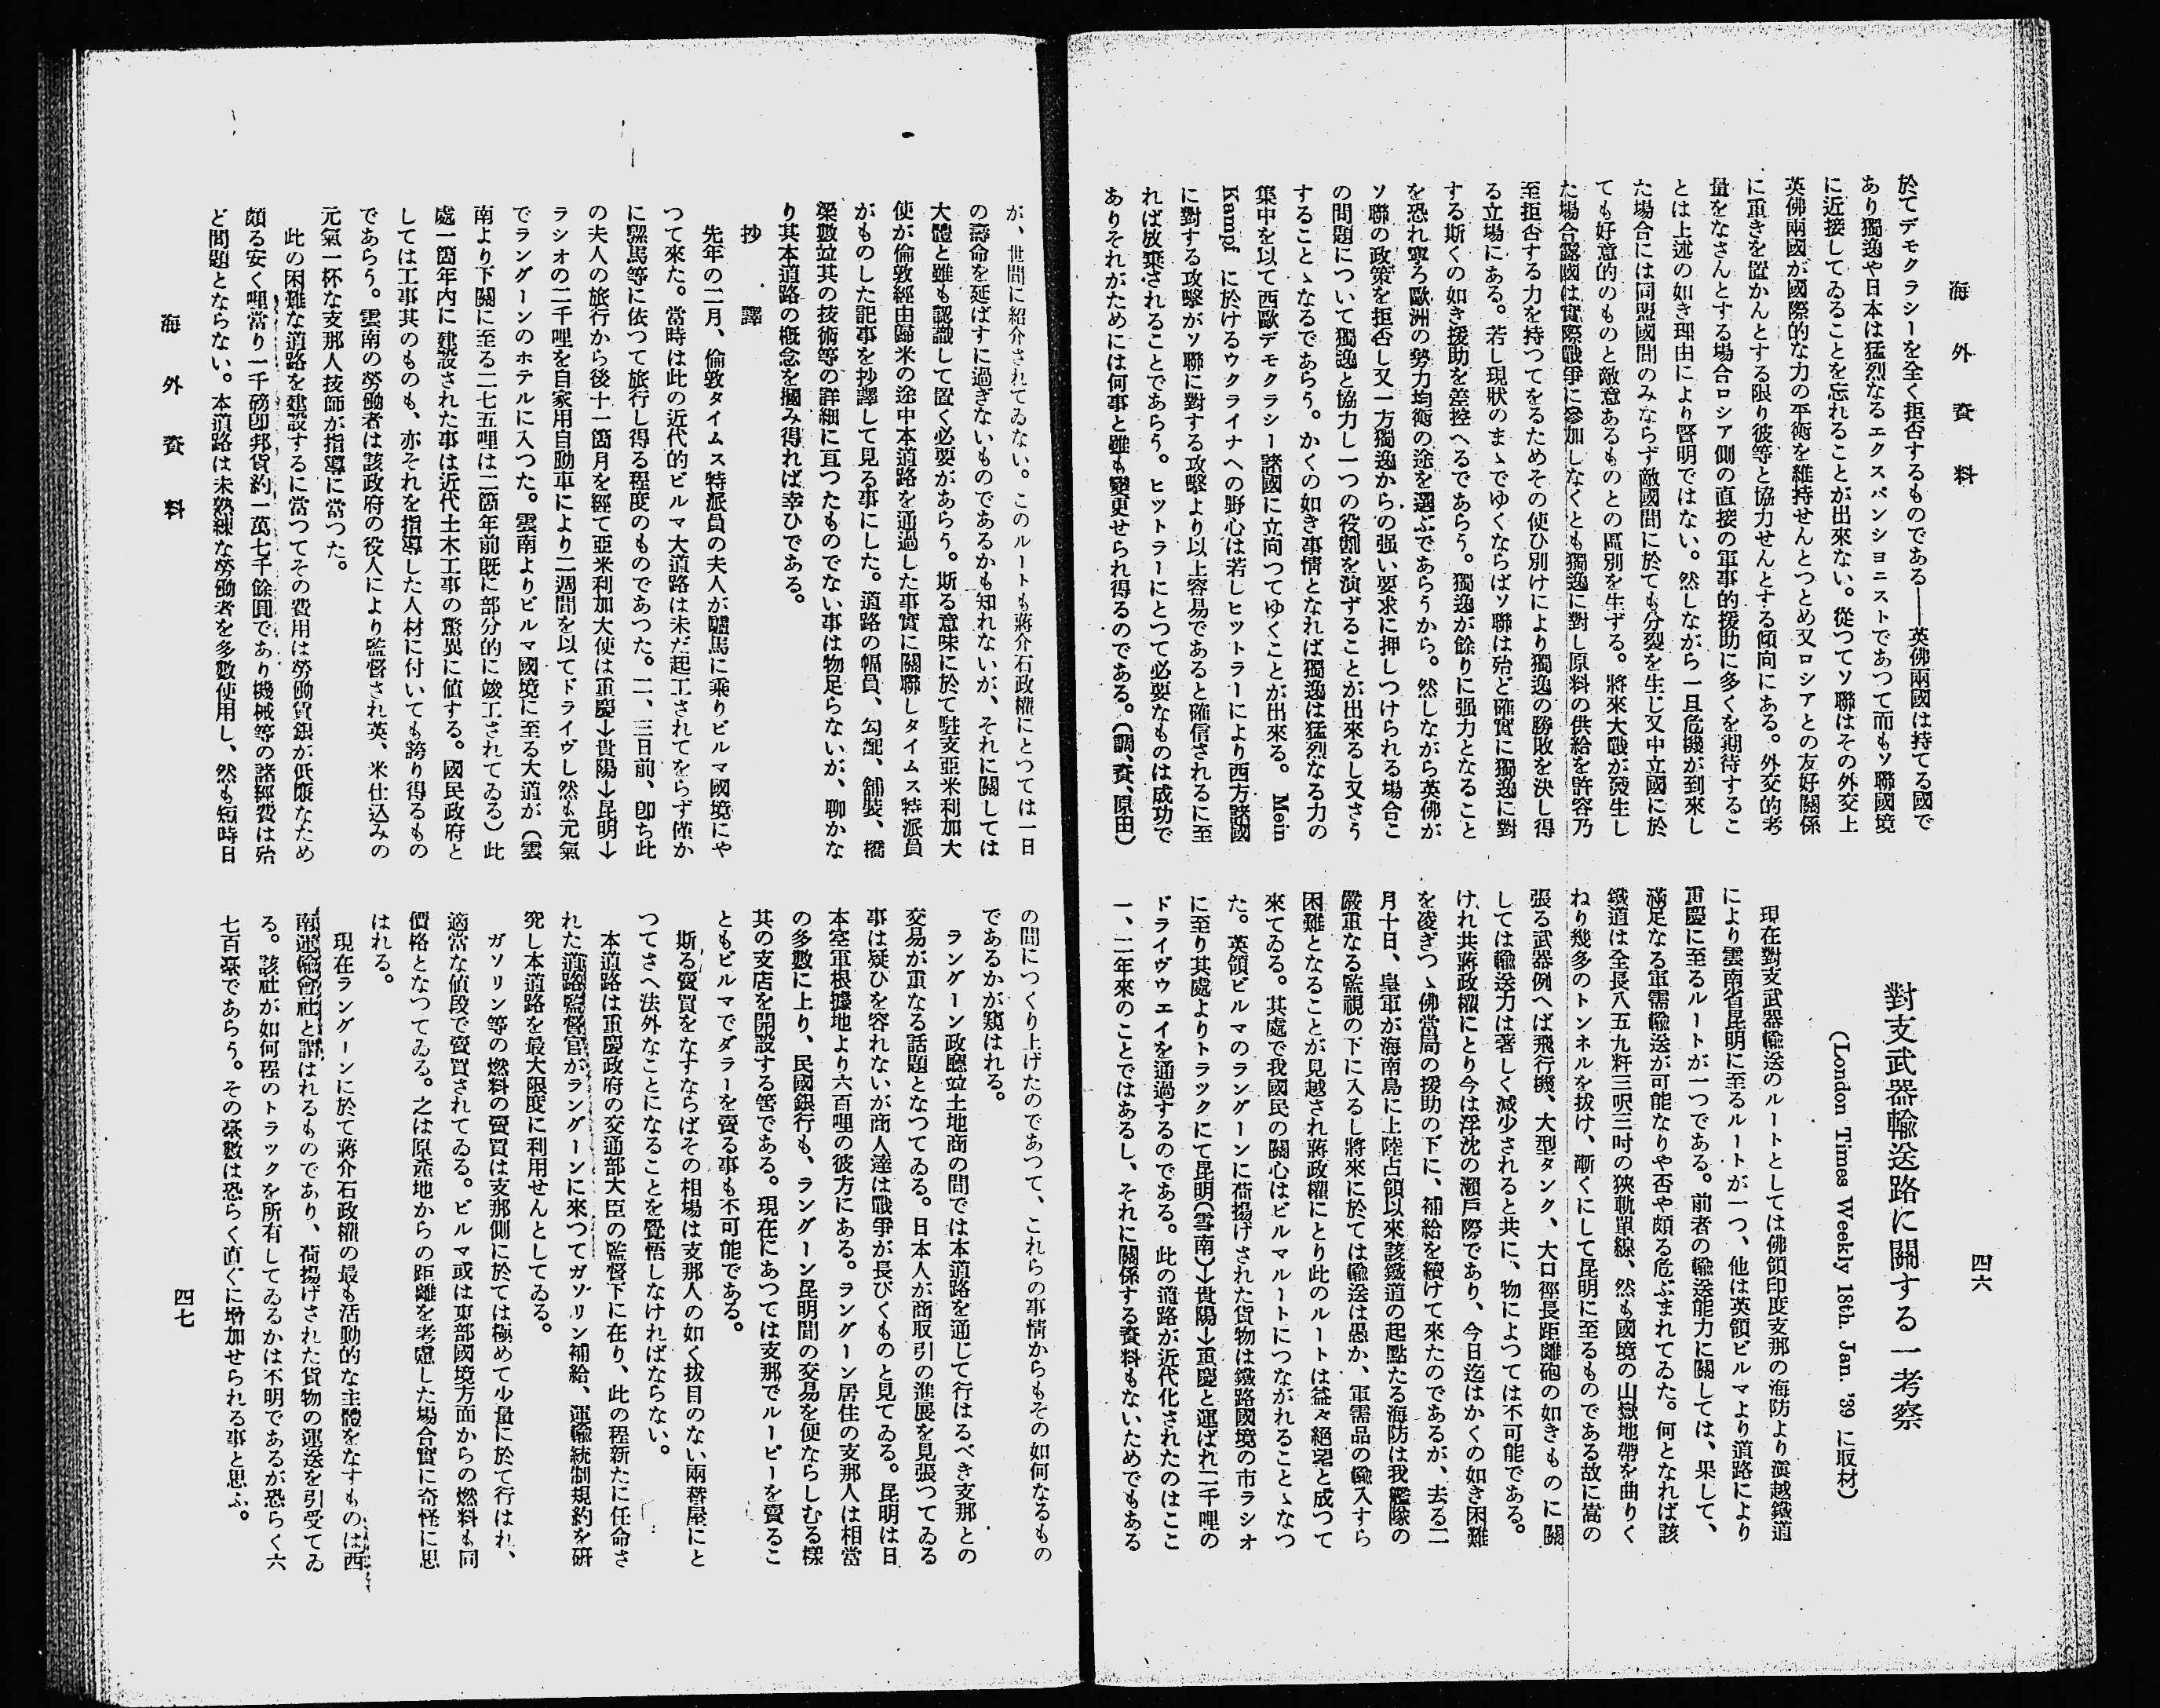 海外資料
四六
於てデモクラシーを全く拒否するものである――英佛兩國は持てる國で
あり獨逸や日本は猛烈なるエクスパンショニストであつて而もソ聯國境
に近接してゐることを忘れることが出來ない。從つてソ聯はその外交上
英佛兩國が國際的な力の平衡を維持せんとつとめ又ロシアとの友好關係
に重きを置かんとする限り彼等と協力せんとする傾向にある。外交的考
量をなさんとする場合ロシア側の直接の軍事的援助に多くを期待するこ
とは上述の如き理由により賢明ではない。然しながら一旦危機が到來し
た場合には同盟國間のみならず敵國間に於ても分裂を生じ又中立國に於
ても好意的のものと敵意あるものとの區別を生ずる。將來大戰が發生し
た場合露國は實際戰爭に參加しなくとも獨逸に對し原料の供給を許容乃
至拒否する力を持つてをるためその使ひ別けにより獨逸の勝敗を決し得
る立場にある。若し現狀のまゝでゆくならばソ聯は殆ど確實に獨逸に對
する斯くの如き援助を差控へるであらう。獨逸が餘りに强力となること
を恐れ寧ろ歐洲の勢力均衡の途を選ぶであらうから。然しながら英佛が
ソ聯の政策を拒否し又一方獨逸からの强い要求に押しつけられる場合こ
の問題について獨逸と協力し一つの役割を演ずることが出來るし又さう
することゝなるであらう。かくの如き事情となれば獨逸は猛烈なる力の
集中を以て西歐デモクラシー諸國に立向つてゆくことが出來る。Mein
Kampf に於けるウクライナへの野心は若しヒットラーにより西方諸國
に對する攻擊がソ聯に對する攻擊より以上容易であると確信されるに至
れば放棄されることであらう。ヒットラーにとつて必要なものは成功で
ありそれがためには何事と雖も變更せられ得るのである。(調、資、原田)
對支武器輸送路に關する一考察
(London Times Weekly 18th. Jan. '39 に取材)
現在對支武器輸送のルートとしては佛領印度支那の海防より滇越鐵道
により雲南省昆明に至るルートが一つ、他は英領ビルマより道路により
重慶に至るルートが一つである。前者の輸送能力に關しては、果して、
滿足なる軍需輸送が可能なりや否や頗る危ぶまれてゐた。何となれば該
鐵道は全長八五九粁三呎三吋の狹軌單線、然も國境の山嶽地帶を曲りく
ねり幾多のトンネルを拔け、漸くにして昆明に至るものである故に嵩の
張る武器例へば飛行機、大型タンク、大口徑長距離砲の如きものに關
しては輸送力は著しく減少されると共に、物によつては不可能である。
けれ共蔣政權にとり今は浮沈の瀨戶際であり、今日迄はかくの如き困難
を凌ぎつゝ佛當局の援助の下に、補給を續けて來たのであるが、去る二
月十日、皇軍が海南島に上陸占領以來該鐵道の起點たる海防は我艦隊の
嚴重なる監視の下に入るし將來に於ては輸送は愚か、軍需品の輸入すら
困難となることが見越され蔣政權にとり此のルートは益々絕望と成つて
來てゐる。其處で我國民の關心はビルマルートにつながれることゝなつ
た。英領ビルマのラングーンに荷揚げされた貨物は鐵路國境の市ラシオ
に至り其處よりトラックにて昆明(雲南)→貴陽→重慶と運ばれ二千哩の
ドライヴウエイを通過するのである。此の道路が近代化されたのはここ
一、二年來のことではあるし、それに關係する資料もないためでもある
が、世間に紹介されてゐない。このルートも蔣介石政權にとつては一日
の壽命を延ばすに過ぎないものであるかも知れないが、それに關しては
大體と雖も認識して置く必要があらう。斯る意味に於て駐支亞米利加大
使が倫敦經由歸米の途中本道路を通過した事實に關聯しタイムス特派員
がものした記事を抄譯して見る事にした。道路の幅員、勾配、舖裝、橋
梁數竝其の技術等の詳細に亘つたものでない事は物足らないが、聊かな
り其本道路の槪念を摑み得れば幸ひである。
抄譯
先年の二月、倫敦タイムス特派員の夫人が驢馬に乘りビルマ國境にや
つて來た。當時は此の近代的ビルマ大道路は未だ起工されてをらず僅か
に騾馬等に依つて旅行し得る程度のものであつた。二、三日前、卽ち此
の夫人の旅行から後十一箇月を經て亞米利加大使は重慶→貴陽→昆明→
ラシオの二千哩を自家用自動車により二週間を以てドライヴし然も元氣
でラングーンのホテルに入つた。雲南よりビルマ國境に至る大道が(雲
南より下關に至る二七五哩は二箇年前既に部分的に竣工されてゐる)此
處一箇年內に建設された事は近代土木工事の驚異に値する。國民政府と
しては工事其のものも、亦それを指導した人材に付いても誇り得るもの
であらう。雲南の勞働者は該政府の役人により監督され英、米仕込みの
元氣一杯な支那人技師が指導に當つた。
此の困難な道路を建設するに當つてその費用は勞働賃銀が低廉なため
頗る安く哩當り一千磅卽邦貨約一萬七千餘圓であり機械等の諸經費は殆
ど問題とならない。本道路は未熟練な勞働者を多數使用し、然も短時日
の間につくり上げたのであつて、これらの事情からもその如何なるもの
であるかが窺はれる。
ラングーン政廳竝土地商の間では本道路を通じて行はるべき支那との
交易が重なる話題となつてゐる。日本人が商取引の進展を見張つてゐる
事は疑ひを容れないが商人達は戰爭が長びくものと見てゐる。昆明は日
本空軍根據地より六百哩の彼方にある。ラングーン居住の支那人は相當
の多數に上り、民國銀行も、ラングーン昆明間の交易を便ならしむる樣
其の支店を開設する筈である。現在にあつては支那でルーピーを賣るこ
ともビルマでダラーを賣る事も不可能である。
斯る賣買をなすならばその相場は支那人の如く拔目のない兩替屋にと
つてさへ法外なことになることを覺悟しなければならない。
本道路は重慶政府の交通部大臣の監督下に在り、此の程新たに任命さ
れた道路監督官がラングーンに來つてガソリン補給、運輸統制規約を硏
究し本道路を最大限度に利用せんとしてゐる。
ガソリン等の燃料の賣買は支那側に於ては極めて少量に於て行はれ、
適當な値段で賣買されてゐる。ビルマ或は東部國境方面からの燃料も同
價格となつてゐる。之は原產地からの距離を考慮した場合實に奇怪に思
はれる。
現在ラングーンに於て蔣介石政權の最も活動的な主體をなすものは西
南運輸會社と謂はれるものであり、荷揚げされた貨物の運送を引受てゐ
る。該社が如何程のトラックを所有してゐるかは不明であるが恐らく六
七百臺であらう。その臺數は恐らく直ぐに增加せられる事と思ふ。
海外資料
四七